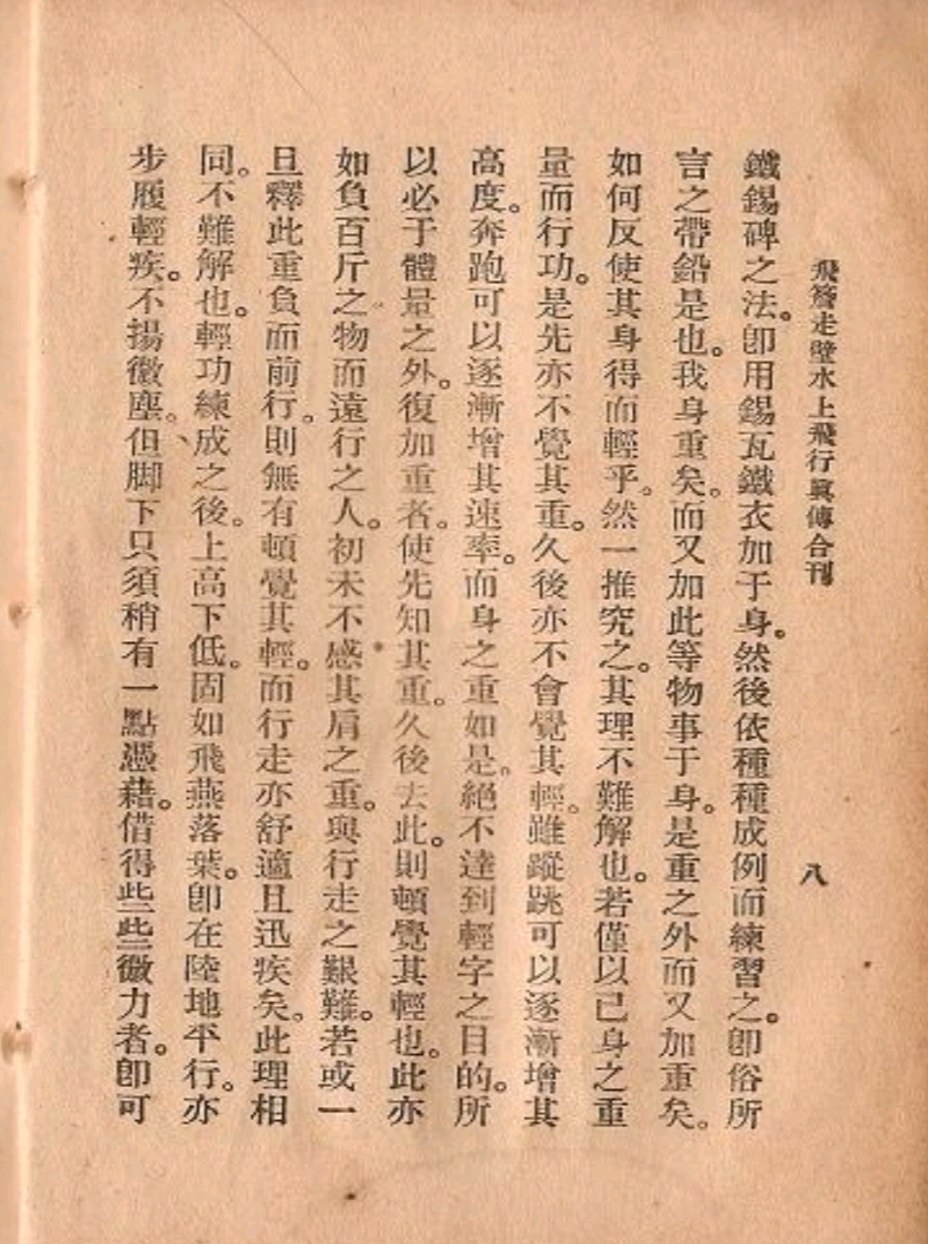 飛簷走壁水上飛行眞傳合刊
八
鐵錫碑之法。卽用錫瓦鐵衣加于身。然後依種種成例而練習之。卽俗所
言之帶鉛是也。我身重矣。而又加此等物事于身。是重之外而又加重矣。
如何反使其身得而輕乎。然一推究之。其理不難解也。若僅以已身之重
量而行功。是先亦不覺其重。久後亦不會覺其輕。雖蹤跳可以逐漸增其
高度。奔跑可以逐漸增其速率。而身之重如是。絕不達到輕字之目的。所
以必于體量之外。復加重者。使先知其重。久後去此。則頓覺其輕也。此亦
如負百斤之物而遠行之人。初未不感其肩之重。與行走之艱難。若或一
且釋此重負而前行。則無有頓覺其輕。而行走亦舒適且迅疾矣。此理相
同。不難解也。輕功練成之後。上高下低。固如飛燕落葉。卽在陸地平行。亦
步履輕疾。不揚微塵。但脚下只須稍有一點憑藉。借得些些微力者。卽可